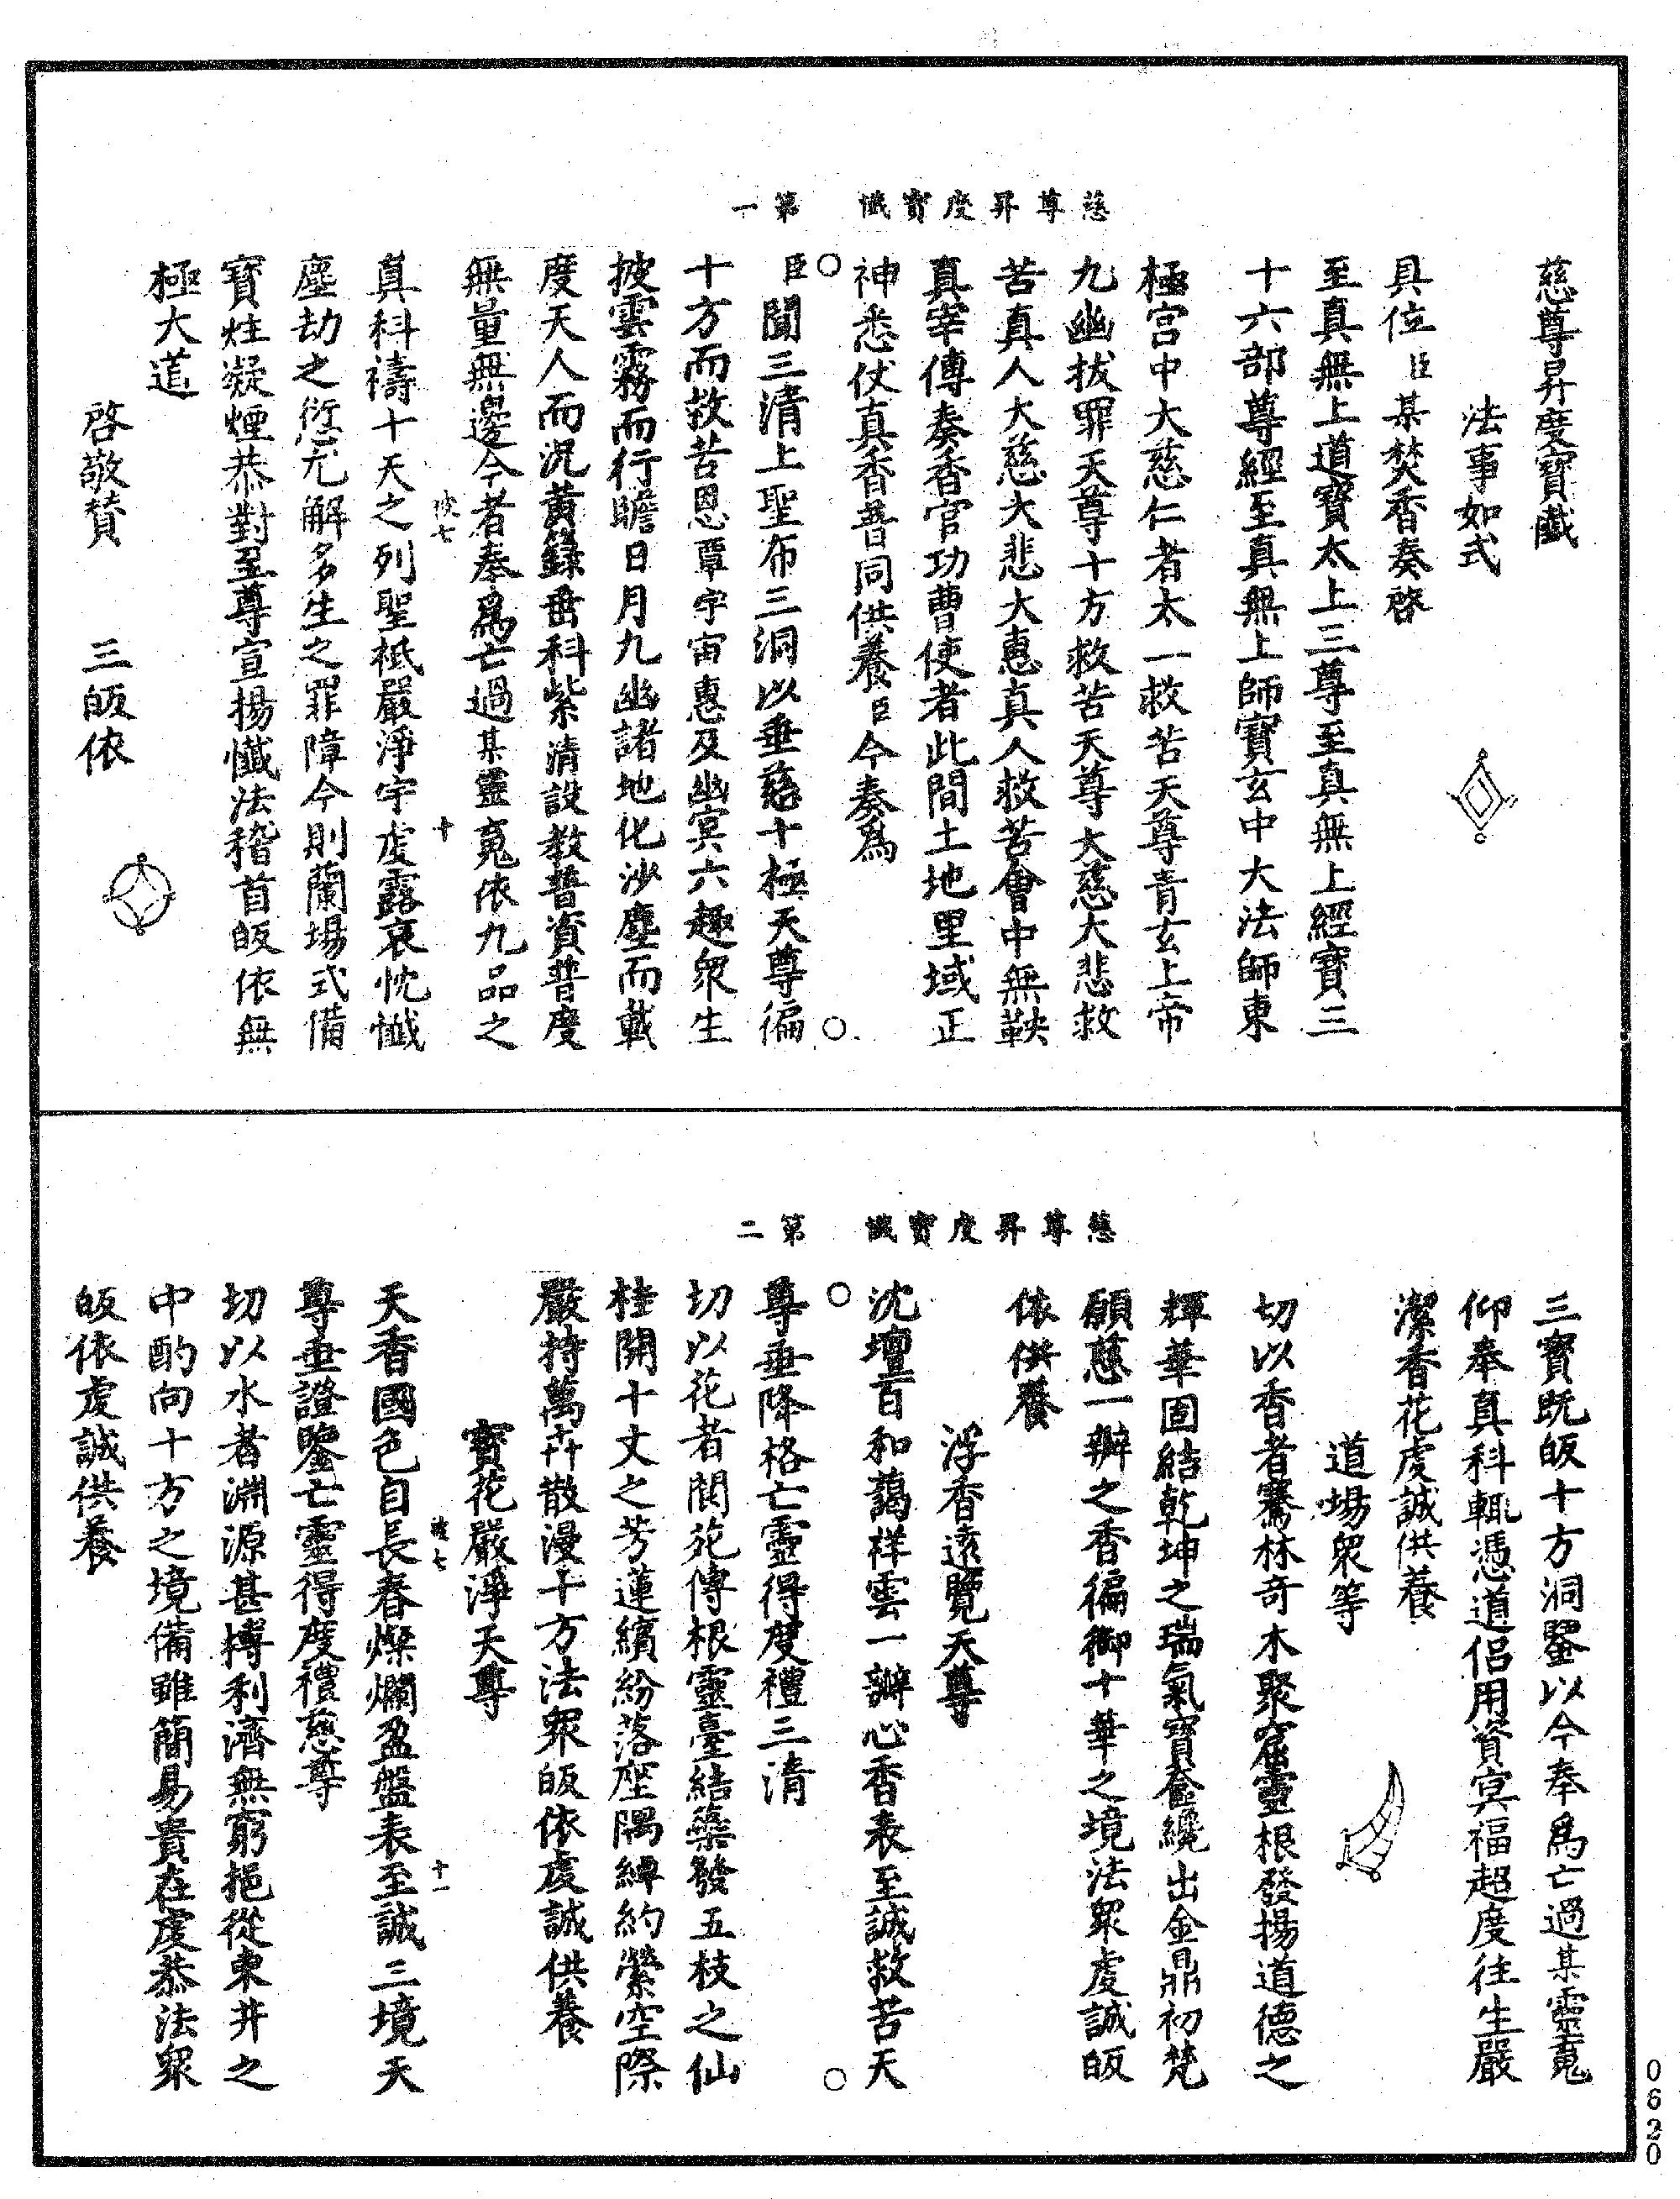 慈尊昇度寶懺　第一
慈尊昇度寶懺
法事如式
具位臣某焚香奏啓
至真無上道寶太上三尊至真無上經寶三
十六部尊經至真無上師寶玄中大法師東
極宮中大慈仁者太一救苦天尊青玄上帝
九幽拔罪天尊十方救苦天尊大慈大悲救
苦真人大慈大悲大惠真人救苦會中無鞅
真宰傳奏香官功曹使者此間土地里域正
神悉仗真香普同供養臣今奏爲
臣聞三清上聖布三洞以垂慈十極天尊徧
十方而救苦恩覃宇宙惠及幽冥六趣衆生
披雲霧而行瞻日月九幽諸地化沙塵而載
度天人而況黃籙垂科紫清設教普資普度
無量無邊今者奉爲亡過某靈䰟依九品之
彼七　十
真科禱十天之列聖祗嚴淨宇虔露哀忱懺
塵劫之愆尤解多生之罪障今則蘭場式備
寶炷凝煙恭對至尊宣揚懺法稽首皈依無
極大道
啓敬賛　三皈依
慈尊昇度寶懺　第二
三寶既皈十方洞鑒以今奉爲亡過某靈䰟
仰奉真科輒憑道侶用資冥福超度往生嚴
潔香花虔誠供養
道場衆等
切以香者騫林奇木聚窟靈根發揚道德之
輝華固結乾坤之瑞氣寶奩纔出金鼎初焚
願慈一瓣之香徧御十華之境法衆虔誠皈
依供養
浮香遠覽天尊
沈壇百和藹祥雲一瓣心香表至誠救苦天
尊垂降格亡靈得度禮三清
切以花者閬苑傳根靈臺結蘂發五枝之仙
桂開十丈之芳蓮繽紛落座隅綽約縈空際
嚴持萬卉散漫十方法衆皈依虔誠供養
寶花嚴淨天尊
彼七　十一
天香國色自長春燦爛盈盤表至誠三境天
尊垂證鑒亡靈得度禮慈尊
切以水者淵源甚博利濟無窮挹從東井之
中酌向十方之境備雖簡易貴在虔恭法衆
皈依虔誠供養
0620